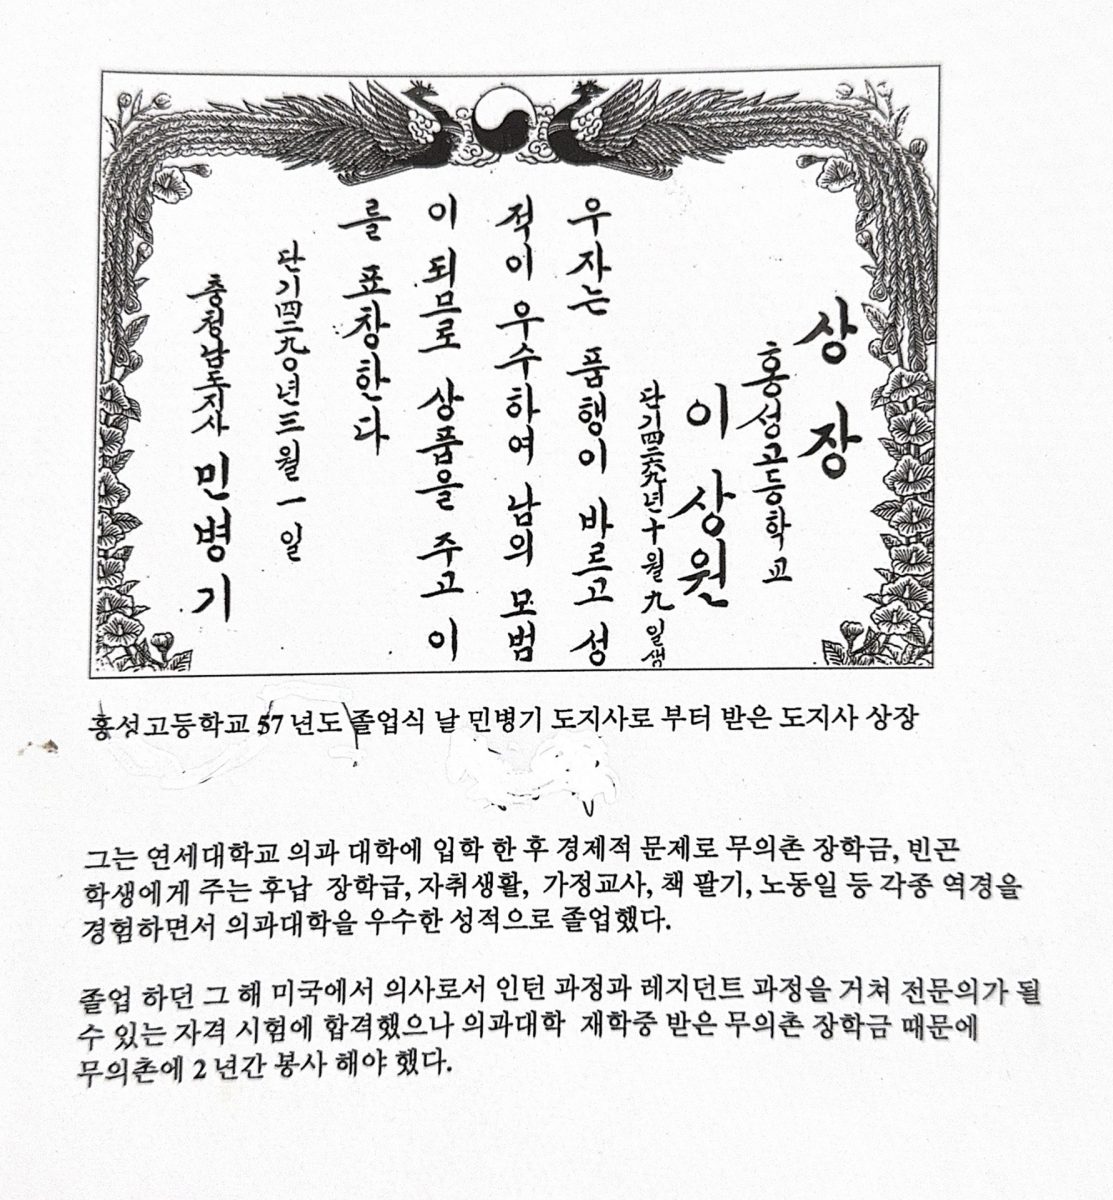 상 장
홍성고등학교
이 상 원
단기四二六九년十월九일생
우자는 품행이 바르고 성
적이 우수하여 남의 모범
이 되므로 상품을 주고 이
를 표창한다
단기四二九〇년三월一일
충청남도지사 민병기
홍성고등학교 57년도 졸업식 날 민병기 도지사로 부터 받은 도지사 상장
그는 연세대학교 의과 대학에 입학 한 후 경제적 문제로 무의촌 장학금, 빈곤
학생에게 주는 후납 장학급, 자취생활, 가정교사, 책 팔기, 노동일 등 각종 역경을
경험하면서 의과대학을 우수한 성적으로 졸업했다.
졸업 하던 그 해 미국에서 의사로서 인턴 과정과 레지던트 과정을 거쳐 전문의가 될
수 있는 자격 시험에 합격했으나 의과대학 재학중 받은 무의촌 장학금 때문에
무의촌에 2년간 봉사 해야 했다.